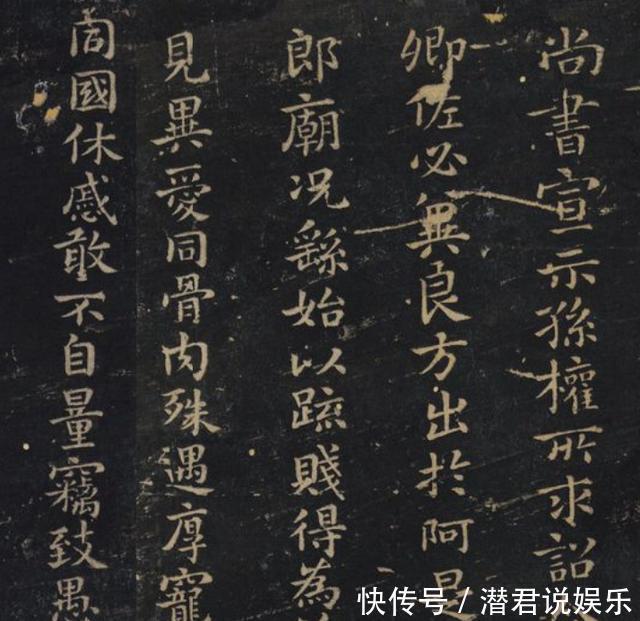 尚書宣示孫權所求詔
卿佐必無良方出於阿是
郎廟况繇始以疏賤得為
見異愛同骨肉殊遇厚寵
同國休慼敢不自量竊致愚
快传号 / 潜君说娱乐